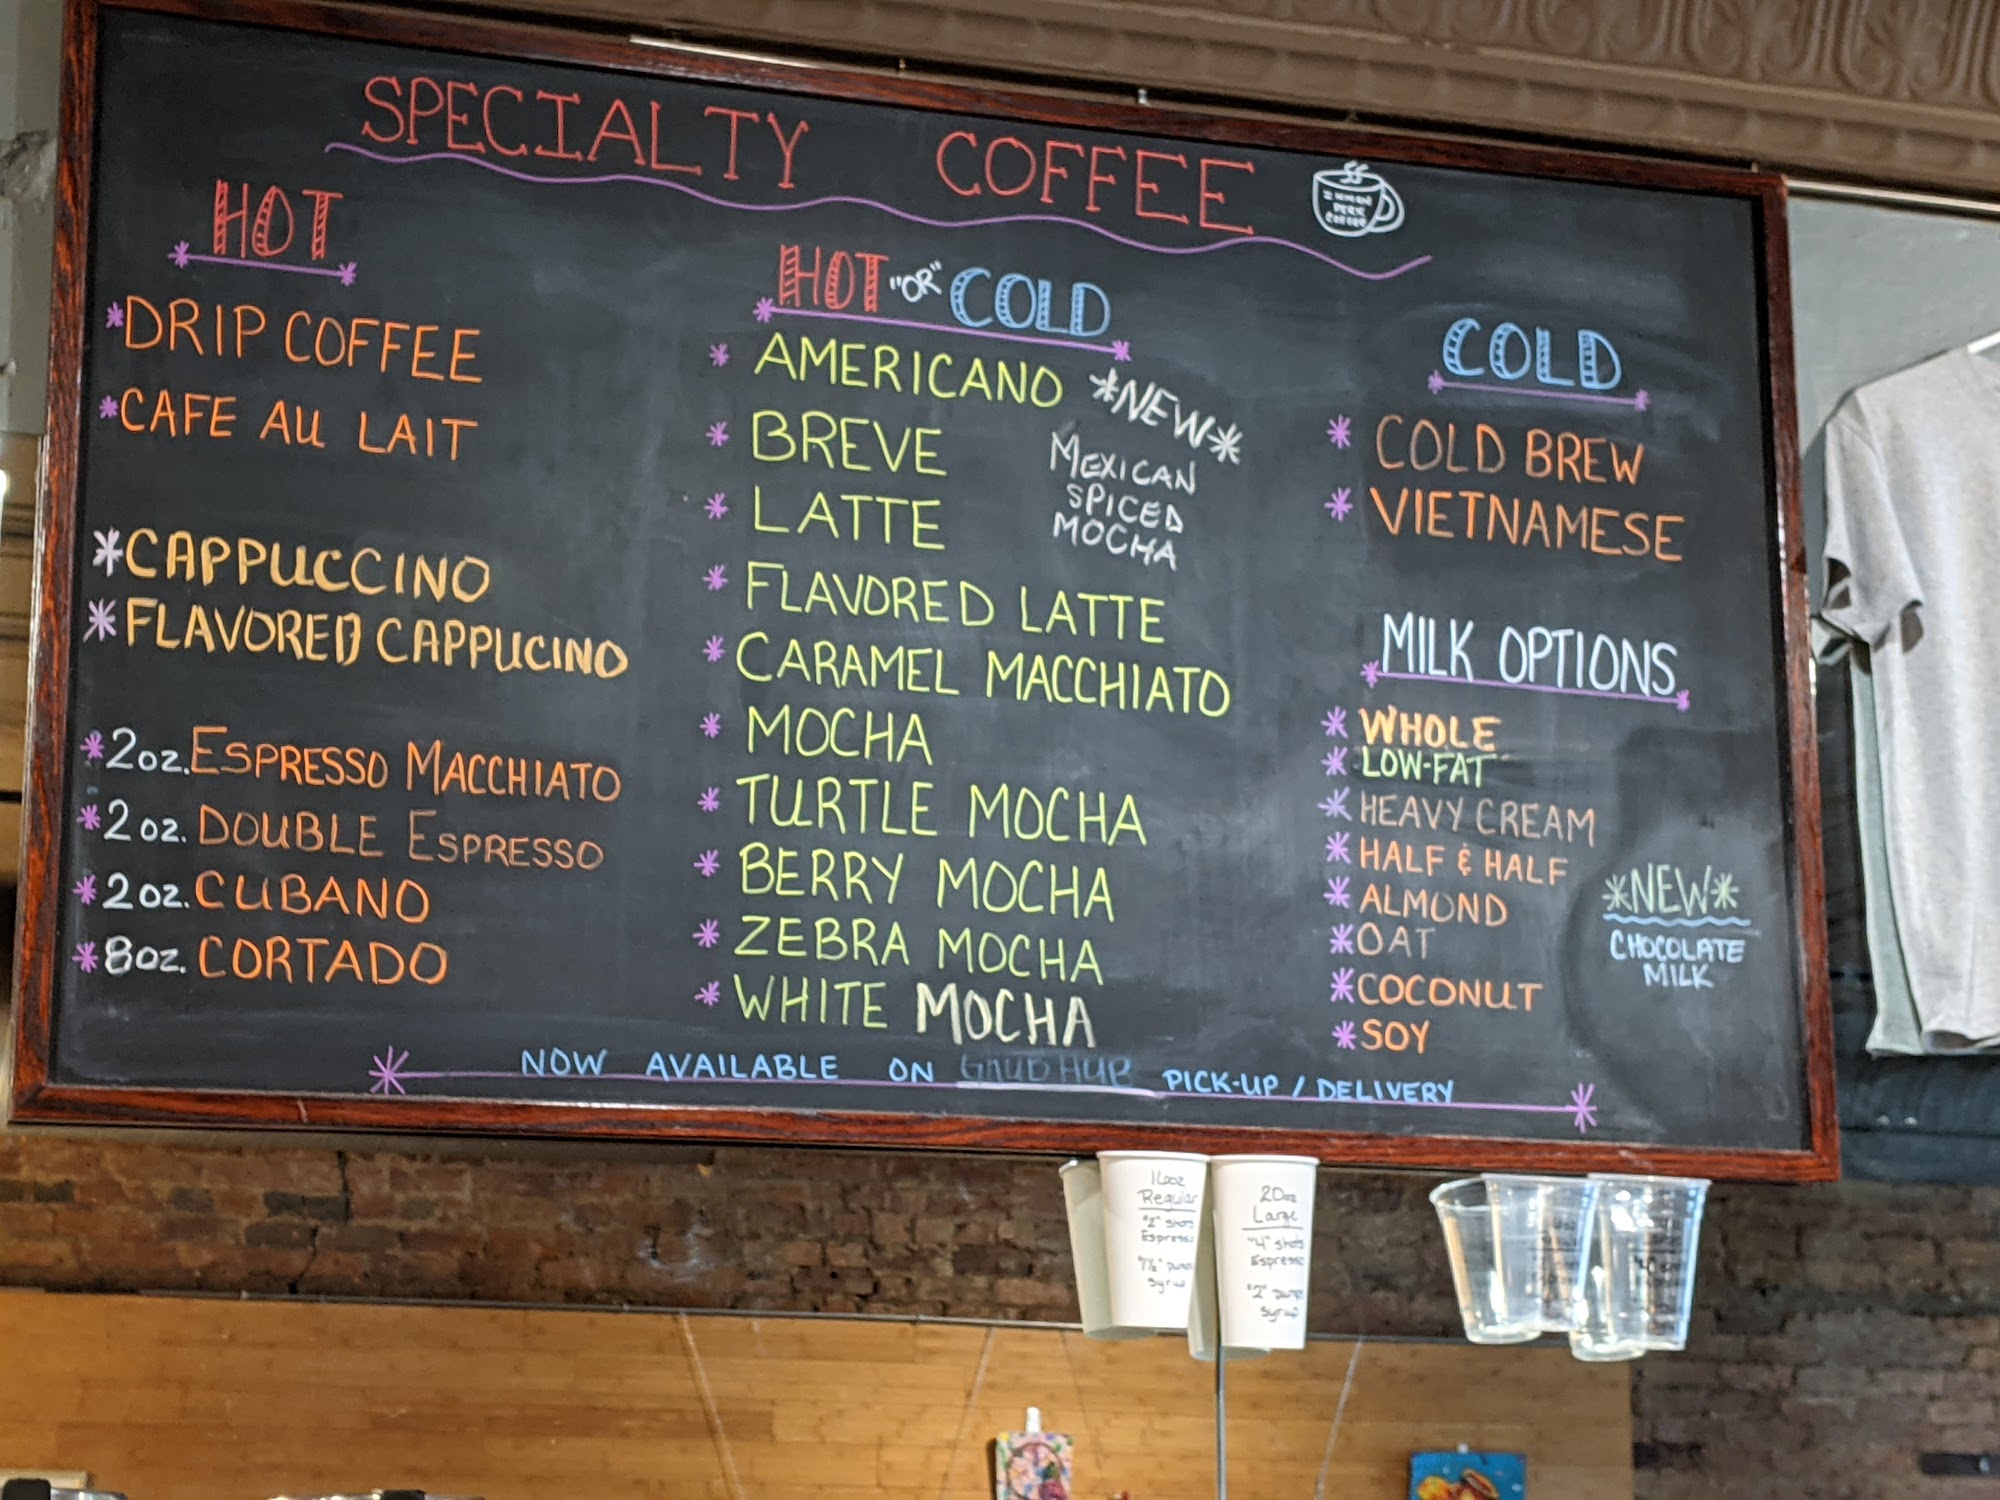 SPECIALTY COFFEE
HOT
*DRIP COFFEE
*CAFE AU LAIT
*CAPPUCCINO
*FLAVORED CAPPUCINO
*2oz. ESPRESSO MACCHIATO
*2oz. DOUBLE ESPRESSO
*2oz. CUBANO
*8oz. CORTADO
HOT "OR" COLD
* AMERICANO
* BREVE
* LATTE
* FLAVORED LATTE
* CARAMEL MACCHIATO
* MOCHA
* TURTLE MOCHA
* BERRY MOCHA
* ZEBRA MOCHA
* WHITE MOCHA
*NEW*
MEXICAN
SPICED
MOCHA
COLD
* COLD BREW
* VIETNAMESE
MILK OPTIONS
* WHOLE
* LOW-FAT
* HEAVY CREAM
* HALF & HALF
* ALMOND
* OAT
* COCONUT
* SOY
*NEW*
CHOCOLATE
MILK
NOW AVAILABLE ON GRUBHUB PICK-UP / DELIVERY
16oz
Regular
"2" shots
Espresso
Syrup
20oz
Large
"4" shots
Espresso
"2" pumps
syrup